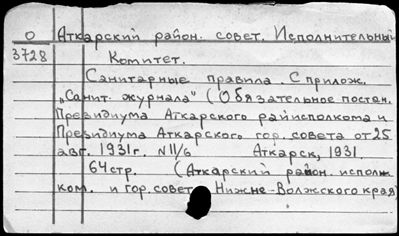 О Аткарский район. совет. Исполнительный
3728 Комитет.
Санитарные правила. С прилож.
„Санит. журнала" (Обязательное постан.
Президиума Аткарского райисполкома и
Президиума Аткарского гор. совета от 25
авг. 1931г. N11/6 Аткарск, 1931.
64 стр. (Аткарский район. исполн.
ком. и гор. совет Нижне-Волжского края)